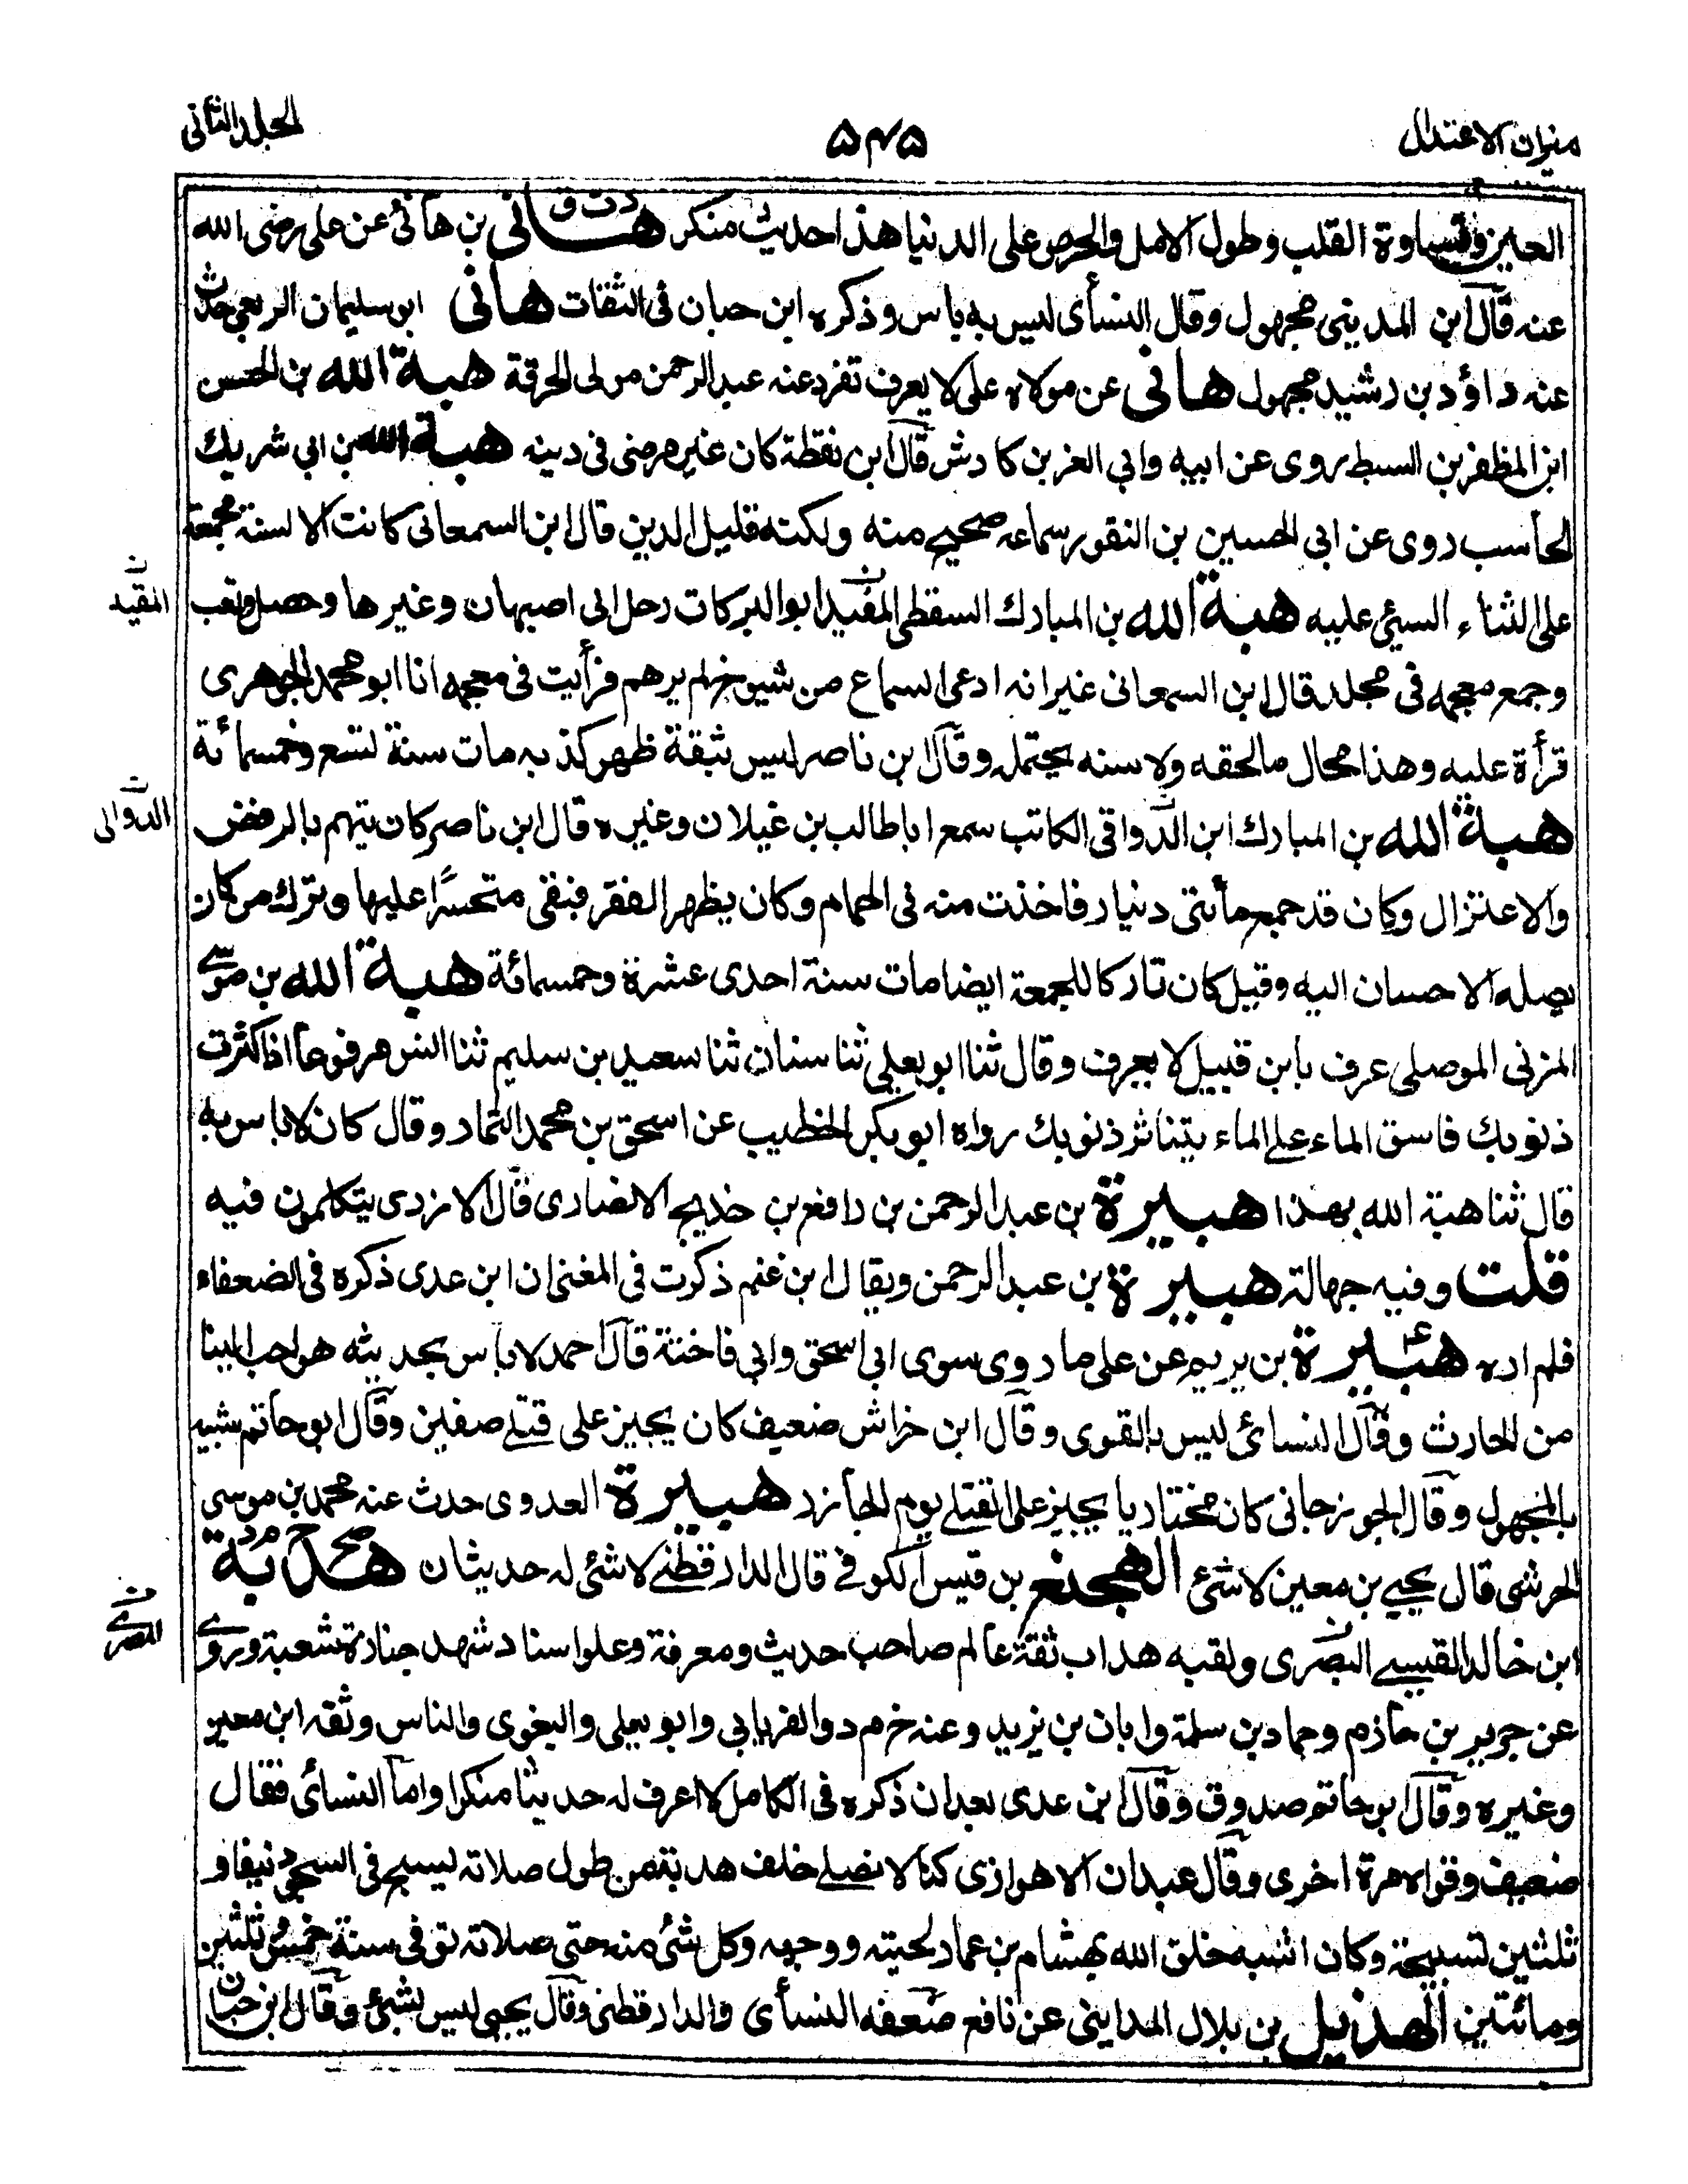 ميزان الاعتدال
۵۴۵
المجلد الثانى
العين وقساوة القلب وطول الامل والحرص على الدنيا هذا حديث منكر هـانى بن هانئ عن على رضى الله
د ت ق
عنه قال ابن المدينى مجهول وقال النسأى ليس به باس وذكره ابن حبان فى الثقات هانى ابو سليمان الربعى حدث
عنه داؤد بن رشيد مجهول هانى عن مولاه على لا يعرف تفرد عنه عبد الرحمن مولى الحرقة هبة الله بن الحسن
ابن المظفر بن السبط روى عن ابيه وابى العز بن كادش قال ابن نقطة كان غير مرضى فى دينه هبة الله بن ابى شريك
الحاسب روى عن ابى الحسين بن النقور سماعه صحيح منه ولكنه قليل الدين قال ابن السمعانى كانت الالسنة مجمعة
على الثناء السيئ عليه هبة الله بن المبارك السقطى المفيد ابو البركات رحل الى اصبهان وغيرها وحصل وتعب
المقيد
وجمع معجمه فى مجلد قال ابن السمعانى غير انه ادعى السماع من شيوخ لم يرهم فرأيت فى معجمه انا ابو محمد الجوهرى
قرأة عليه وهذا محال ما لحقه ولا سنه يحتمل وقال ابن ناصر ليس بثقة ظهر كذبه مات سنة تسع وخمسمائة
هبة الله بن المبارك ابن الدواقى الكاتب سمع ابا طالب بن غيلان وغيره قال ابن ناصر كان يتهم بالرفض
الدوالى
والاعتزال وكان قد جمع مأتى دينار فاخذت منه فى الحمام وكان يظهر الفقر فبقى متحسرًا عليها وترك من كان
يصله الاحسان اليه وقيل كان تاركا للجمعة ايضا مات سنة احدى عشرة وخمسمائة هبة الله بن موسى
المزنى الموصلى عرف بابن قبيل لا يعرف وقال ثنا ابو يعلى ثنا سنان ثنا سعيد بن سليم ثنا انس مرفوعا اذا كثرت
ذنوبك فاسق الماء على الماء يتناثر ذنوبك رواه ابو بكر الخطيب عن اسحق بن محمد التمار وقال كان لا باس به
قال ثنا هبة الله بهذا هبيرة بن عبد الرحمن بن رافع بن خديج الانصارى قال الازدى يتكلمون فيه
قلت وفيه جهالة هبيرة بن عبد الرحمن ويقال ابن غنم ذكرت فى المغنى ان ابن عدى ذكره فى الضعفاء
فلم اره هبيرة بن يريم عن على ما روى سوى ابى اسحق وابى فاختة قال احمد لا بأس بحديثه هو احب الينا
عـ
من الحارث وقال النسائى ليس بالقوى وقال ابن خراش ضعيف كان يجيز على قتلى صفين وقال ابو حاتم شبيه
بالمجهول وقال الجوزجانى كان مختاريا يجيز على القتلى يوم الجازر هبيرة العدوى حدث عنه محمد بن موسى
الحرشى قال يحيى بن معين لا شئ الهجنع بن قيس الكوفى قال الدارقطنى لا شئ له حديثان هدبة
صح خ م د
ابن خالد القيسى البصرى ولقبه هداب ثقة عالم صاحب حديث ومعرفة وعلو اسناد شهد جنازة شعبة وروى
المصرى
عن جرير بن حازم وحماد بن سلمة وابان بن يزيد وعنه خ م د والفريابى وابو يعلى والبغوى والناس وثقه ابن معين
وغيره وقال ابو حاتم صدوق وقال ابن عدى بعد ان ذكره فى الكامل لا اعرف له حديثا منكرا واما النسائى فقال
ضعيف وقواه مرة اخرى وقال عبدان الاهوازى كنا لا نصلى خلف هدبة من طول صلاته يسبح فى السجود نيفا و
ثلثين تسبيحة وكان اشبه خلق الله بهشام بن عمار لحيته ووجهه وكل شئ منه حتى صلاته توفى سنة خمس وثلثين
ومائتين الهذيل بن بلال المداينى عن نافع ضعفه النسأى والدارقطنى وقال يحيى ليس بشئ وقال ابن حبان